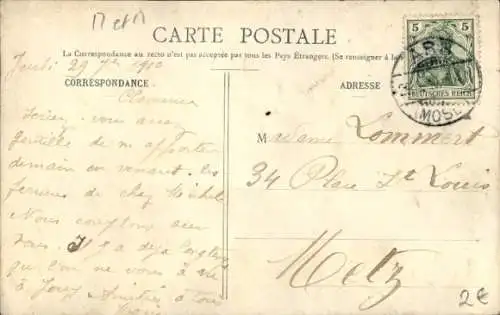 M et M
CARTE POSTALE
La Correspondance au recto n'est pas acceptée par tous les Pays Étrangers. (Se renseigner à la
5 5
DEUTSCHES REICH
ARS
(MOSEL
Jeudi 29 7bre 1910
CORRESPONDANCE
ADRESSE
Soyez vous assez
gentille de m'apporter
demain en venant les
de chez Michel
Nous comptons sur
vous. Il y a déjà longtemps
que l'on ne vous a vu
à Jouy Amitiés à tous
Madame Lommert
34 Place St Louis
Metz
2€